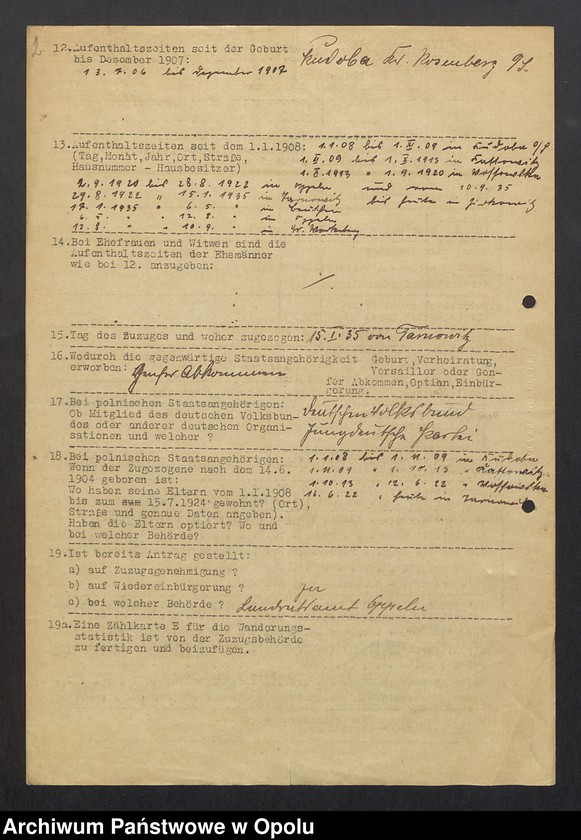 2
12. Aufenthaltszeiten seit der Geburt
bis Dezember 1907: Kudoba Kr. Rosenberg O/S.
13.7.06 bis Dezember 1907
13. Aufenthaltszeiten seit dem 1.1.1908: 1.1.08 bis 1.IV.09 in Kudoba O/S
(Tag, Monat, Jahr, Ort, Straße, 1.IV.09 bis 1.X.1913 in Kattowitz
Hausnummer - Hausbesitzer) 1.X.1913 " 1.9.1920 in
2.9.1920 bis 28.8.1922 in Oppeln und vom 10.9.35
29.8.1922 " 15.1.1935 in Tarnowitz bis heute in
17.1.1935 " 6.5. " in Beuthen
6.5. " 12.8. " in Oppeln
12.8. " 10.9. " in Gr.
14. Bei Ehefrauen und Witwen sind die
Aufenthaltszeiten der Ehemänner
wie bei 12. anzugeben:
15. Tag des Zuzuges und woher zugezogen: 15.I.35 von Tarnowitz
16. Wodurch die gegenwärtige Staatsangehörigkeit Geburt, Verheiratung,
erworben: Genfer Abkommen Versailler oder Gen-
fer Abkommen, Option, Einbür-
gerung.
17. Bei polnischen Staatsangehörigen: Deutschen Volksbund
Ob Mitglied des deutschen Volksbun-
des oder anderer deutschen Organi- Jungdeutsche Partei
sationen und welcher ?
18. Bei polnischen Staatsangehörigen: 1.1.08 bis 1.11.09 in Kudoba
Wenn der Zugezogene nach dem 14.6. 1.11.09 " 1.10.13 " Kattowitz
1904 geboren ist: 1.10.13 " 12.6.22 "
Wo haben seine Eltern vom 1.1.1908 16.6.22 " heute in Tarnowitz
bis zum 15.7.1924 gewohnt? (Ort,
Straße und genaue Daten angeben).
Haben die Eltern optiert? Wo und
bei welcher Behörde?
19. Ist bereits Antrag gestellt:
a) auf Zuzugsgenehmigung ?
b) auf Wiedereinbürgerung ? ja
c) bei welcher Behörde ? Landratsamt Oppeln
19a. Eine Zählkarte E für die Wanderungs-
statistik ist von der Zuzugsbehörde
zu fertigen und beizufügen.
Archiwum Państwowe w Opolu